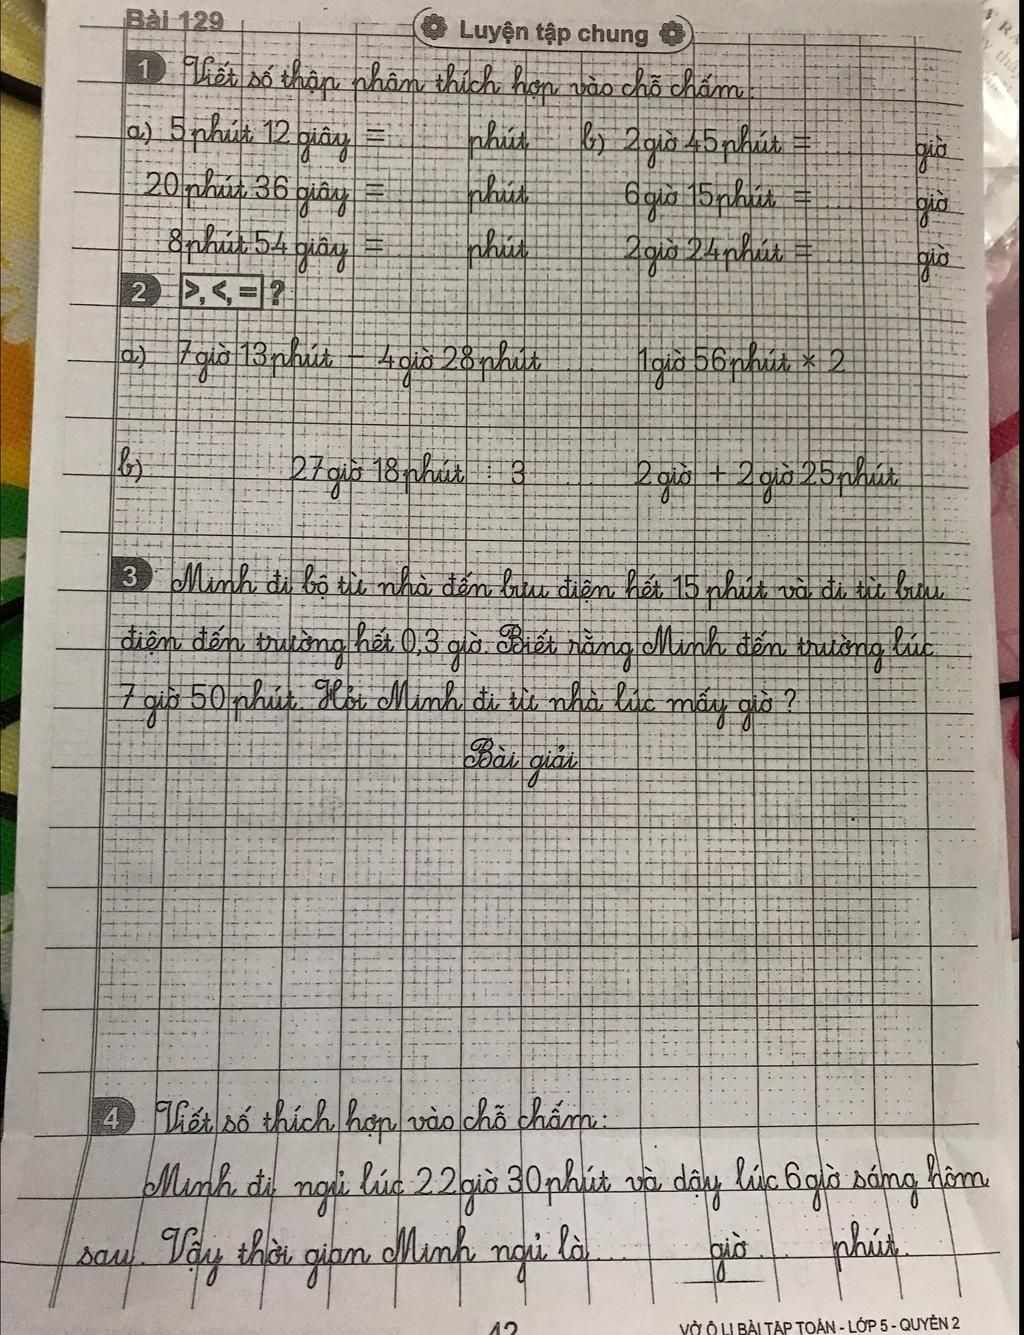 Bài 129
Luyện tập chung
1 Viết số thập phân thích hợp vào chỗ chấm:
a) 5 phút 12 giây = phút b) 2 giờ 45 phút = giờ
20 phút 36 giây = phút 6 giờ 15 phút = giờ
8 phút 54 giây = phút 2 giờ 24 phút = giờ
2 >, <, = ?
a) 7 giờ 13 phút - 4 giờ 28 phút 1 giờ 56 phút × 2
b) 27 giờ 18 phút : 3 2 giờ + 2 giờ 25 phút
3 Minh đi bộ từ nhà đến bưu điện hết 15 phút và đi từ bưu
điện đến trường hết 0,3 giờ. Biết rằng Minh đến trường lúc
7 giờ 50 phút. Hỏi Minh đi từ nhà lúc mấy giờ ?
Bài giải
4 Viết số thích hợp vào chỗ chấm:
Minh đi ngủ lúc 22 giờ 30 phút và dậy lúc 6 giờ sáng hôm
sau. Vậy thời gian Minh ngủ là giờ phút.
VỞ Ô LI BÀI TẬP TOÁN - LỚP 5 - QUYỂN 2